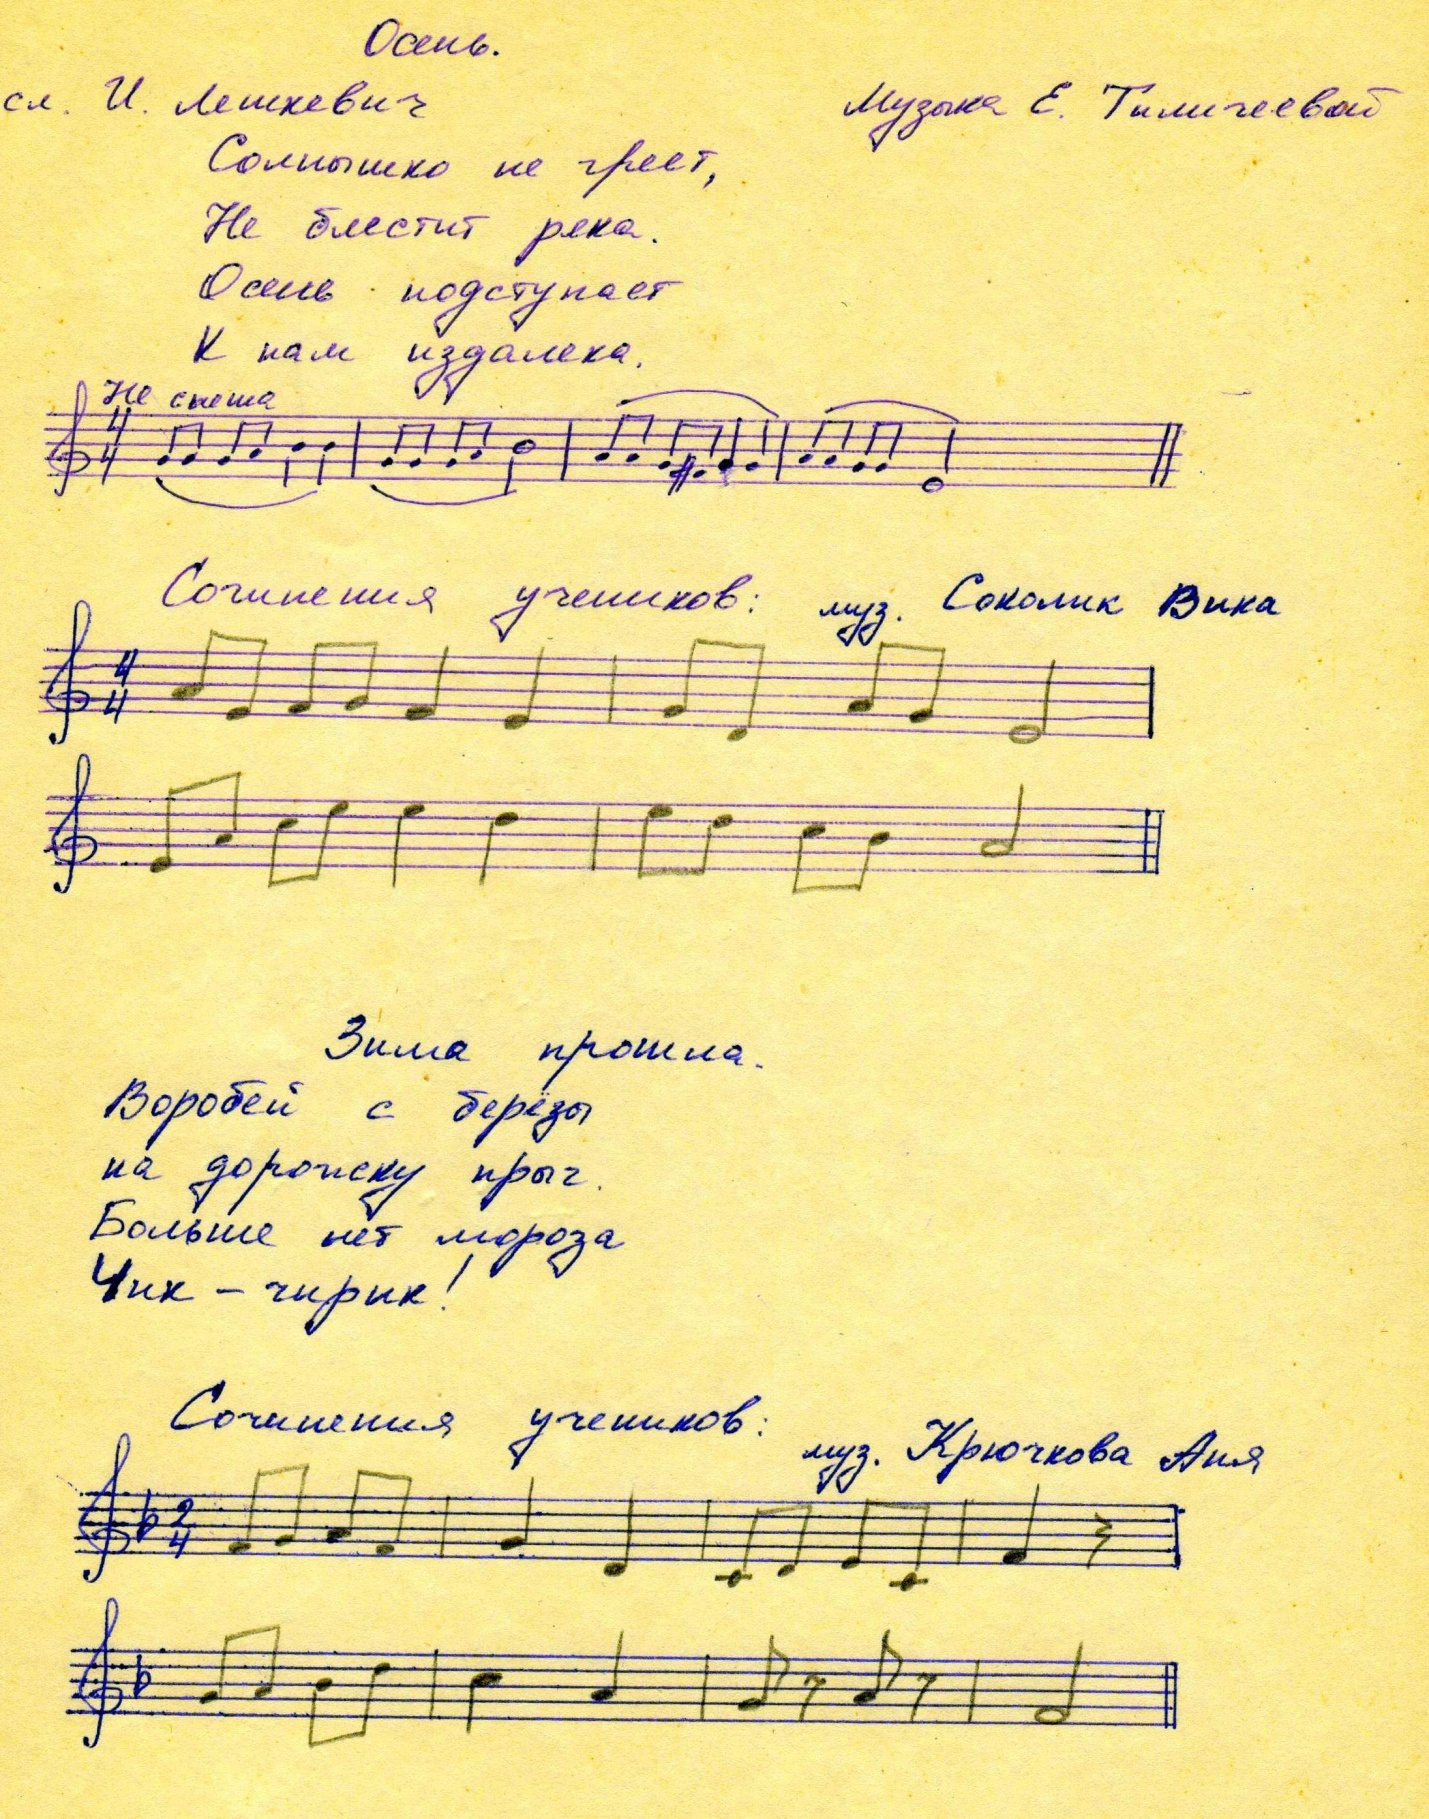 Осень.
сл. И. Лешкевич
Музыка Е. Тиличеевой
Солнышко не греет,
Не блестит река.
Осень подступает
К нам издалека.
Не спеша
4
4
Сочинения учеников: муз. Соколик Вика
4
4
Зима прошла.
Воробей с берёзы
на дорожку прыг.
Больше нет мороза
Чик - чирик!
Сочинения учеников:
муз. Крючкова Аня
2
4